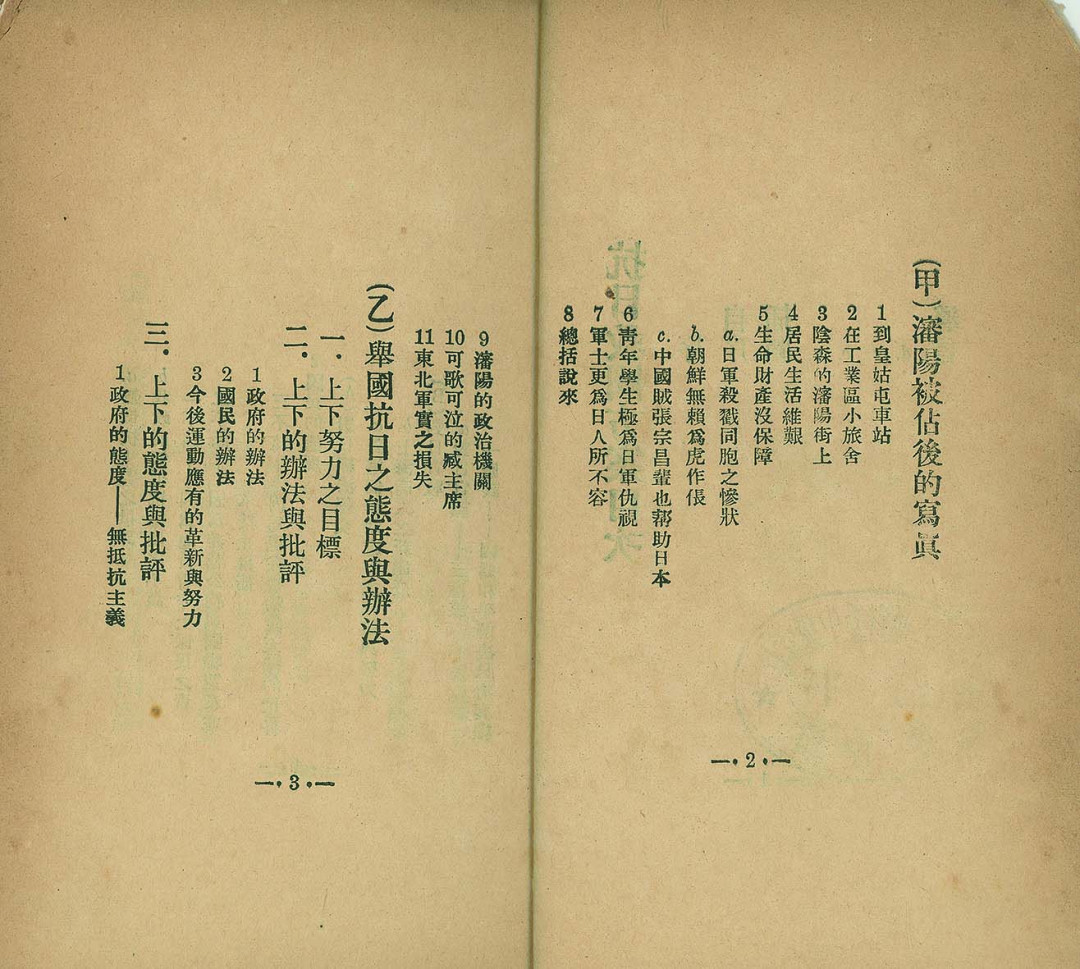 (甲)瀋陽被佔後的寫眞
1到皇姑屯車站
2在工業區小旅舍
3陰森的瀋陽街上
4居民生活維艱
5生命財產沒保障
a.日軍殺戮同胞之慘狀
b.朝鮮無賴爲虎作倀
c.中國賊張宗昌輩也幫助日本
6靑年學生極爲日軍仇視
7軍士更爲日人所不容
8總括說來
—·2·—
9瀋陽的政治機關
10可歌可泣的臧主席
11東北軍實之損失
(乙)舉國抗日之態度與辦法
一．上下努力之目標
二．上下的辦法與批評
1政府的辦法
2國民的辦法
3今後運動應有的革新與努力
三．上下的態度與批評
1政府的態度——無抵抗主義
—·3·—